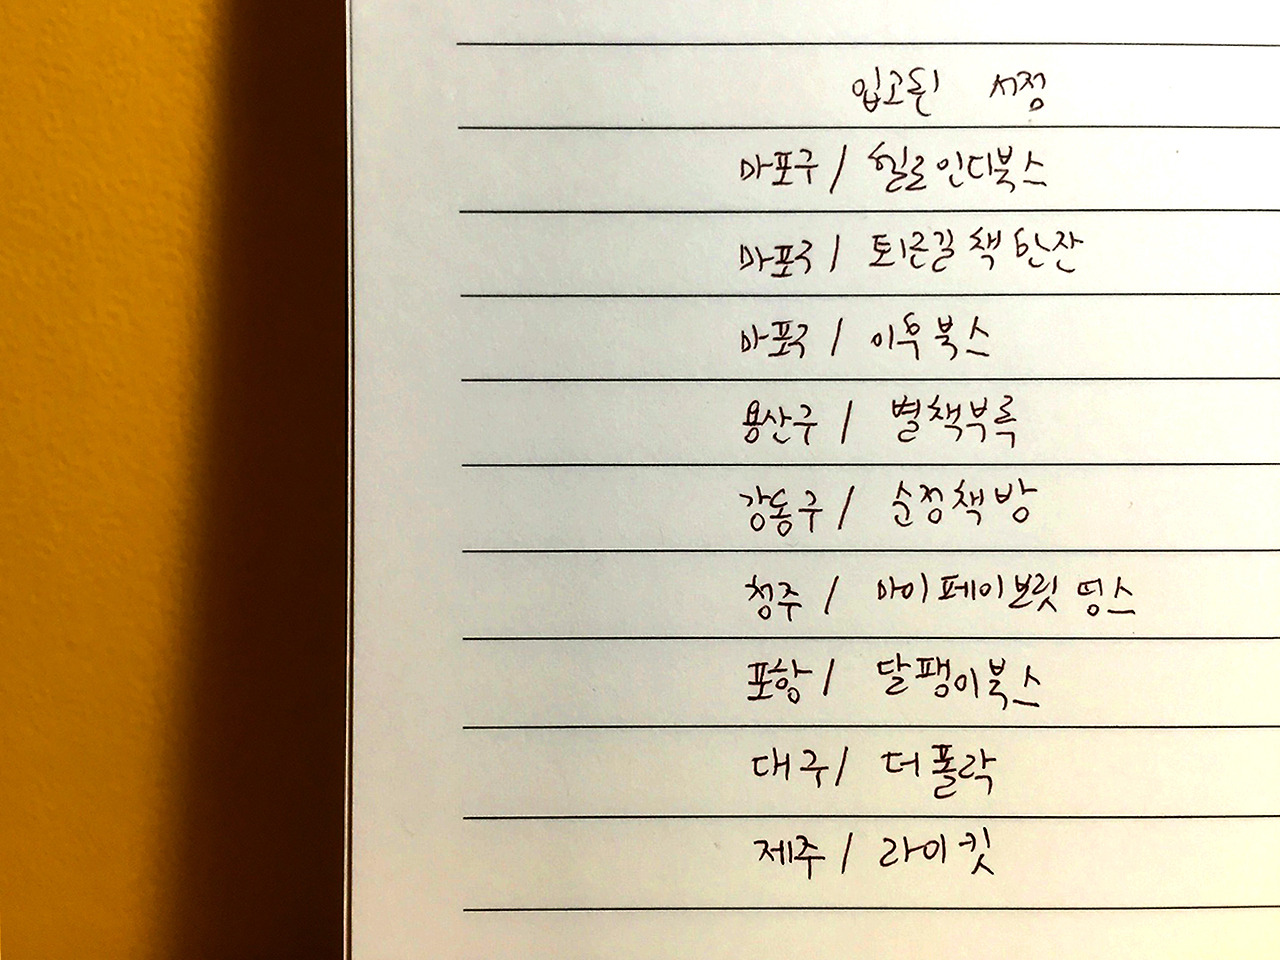 입고된 서점
마포구 / 헬로인디북스
마포구 / 퇴근길 책 한잔
마포구 / 이후북스
용산구 / 별책부록
강동구 / 순정책방
청주 / 마이페이보릿 띵스
포항 / 달팽이북스
대구 / 더폴락
제주 / 라이킷